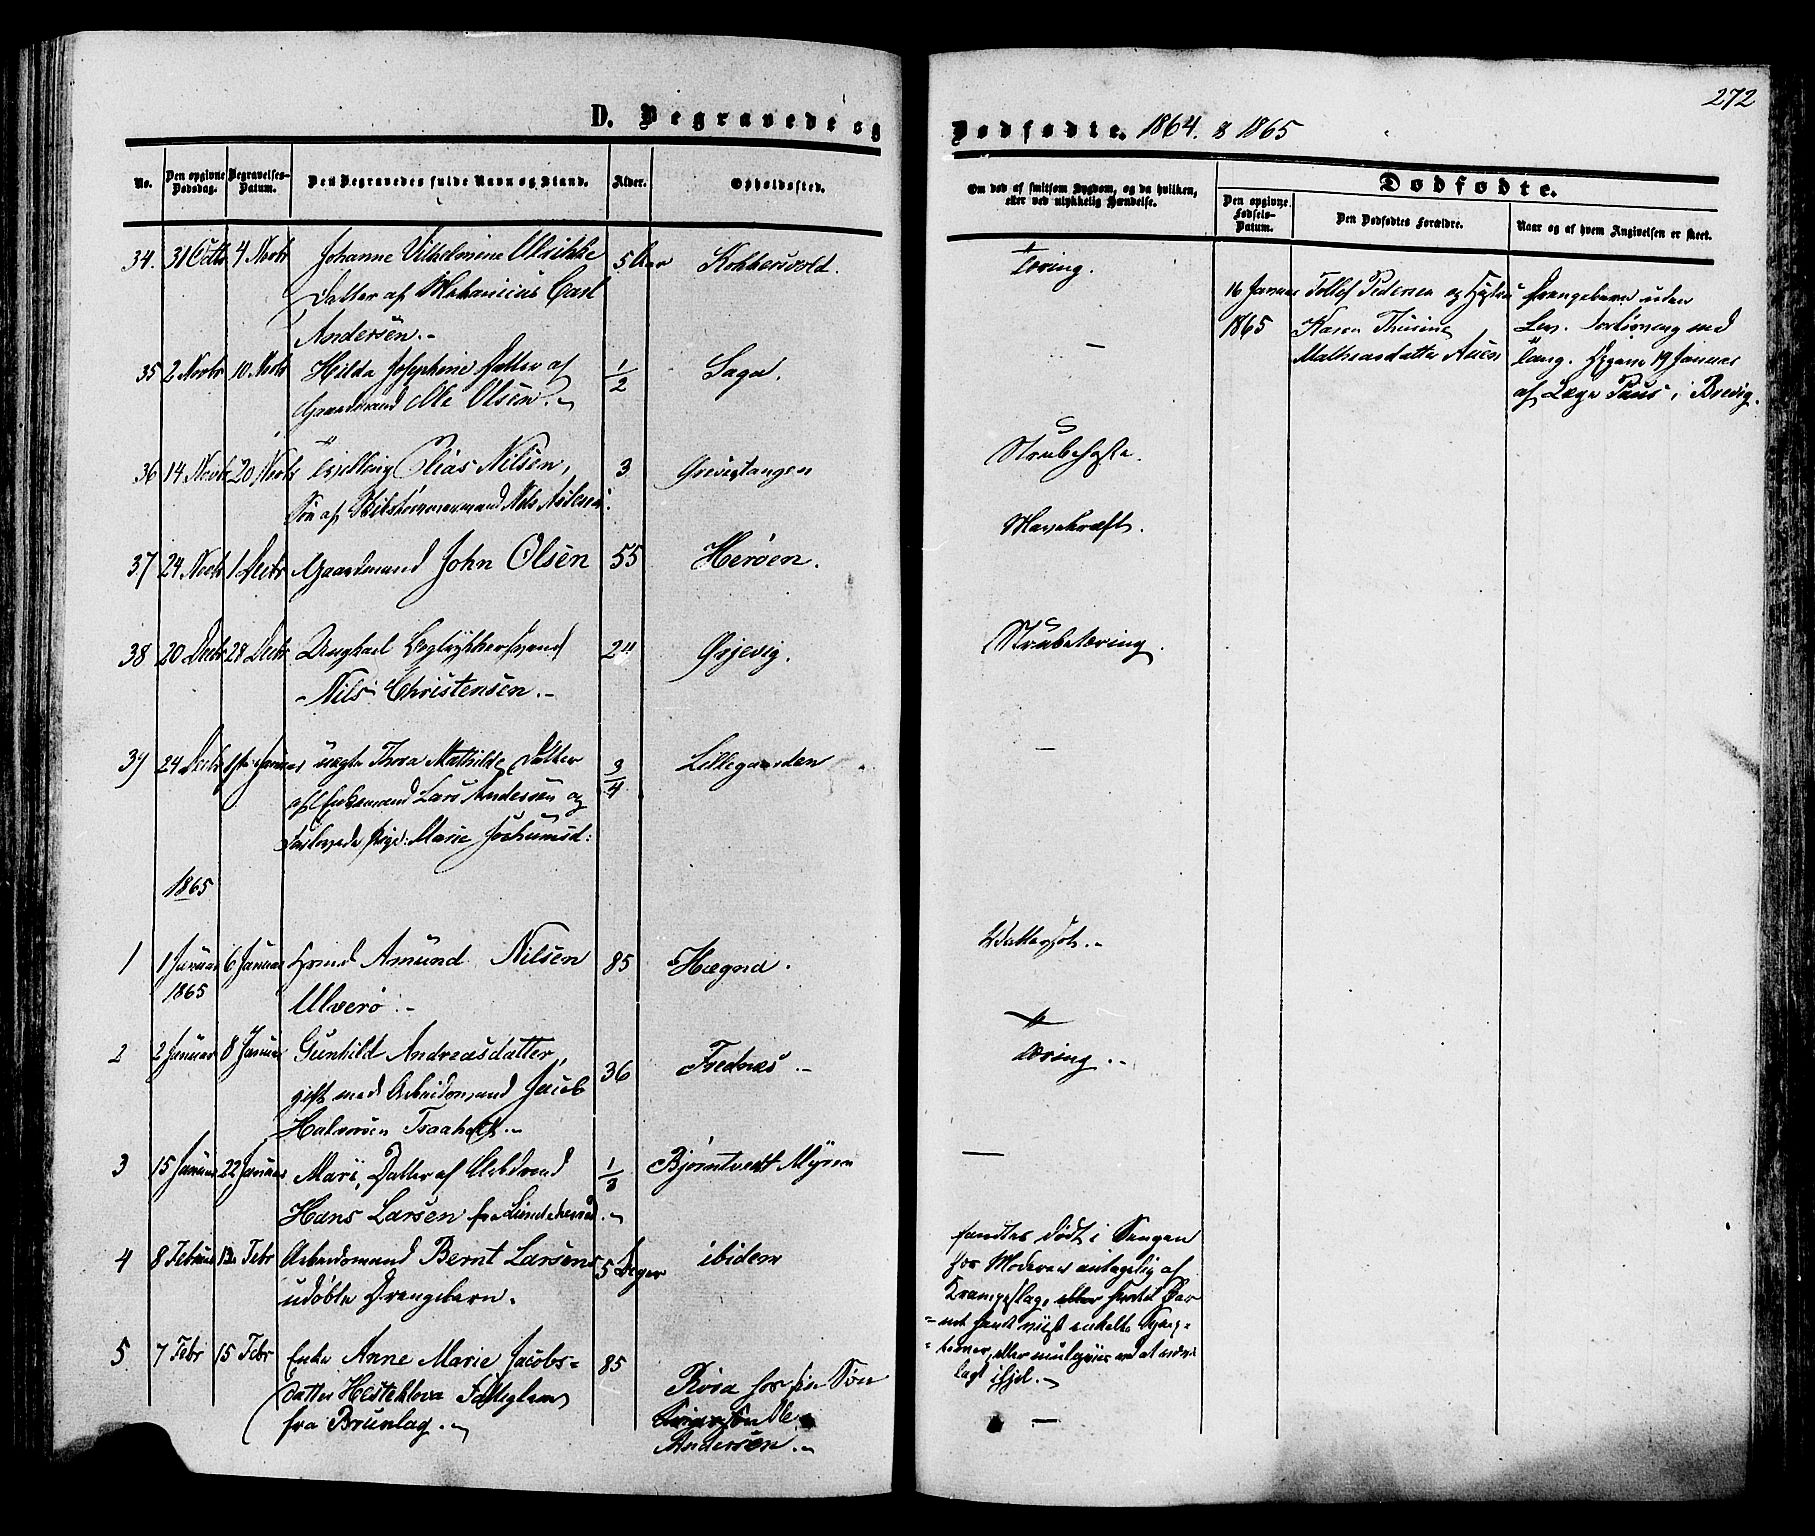 272
D. Begravede og
Dødfødte. 1864. & 1865
No.
Den opgivne Dødsdag.
Begravelses-Datum.
Den Begravedes fulde Navn og Stand.
Alder.
Opholdssted.
Om død af smitsom Sygdom, og da hvilken, eller ved ulykkelig Hændelse.
Dødfødte.
Den opgivne Fødsels-Datum.
Den Dødfødtes Forældre.
Naar og af hvem Angivelsen er skeet.
34. 31 Octbr 4 Novbr Johanne Vilhelmine Ulrikke 5 Aar Kokkersvold. Tæring.
Datter af Mekanicus Carl
Andersen.-
16 Januar Tollef Pedersen og Hustru Drengebarn uden
1865 Karen Thurine
Mathiasdatter Auen Tang. 19 Januar
af Læge Paus i Brevig.
35 2 Novbr 10 Novbr Hilda Josephine Datter af 1/2 Saga. -
Gaardmand Ole Olsen.-
36 14 Novbr 20 Novbr Tvilling Elias Nilsen, 3 Grevestangen Strubehoste.
Søn af Skibstømmermand Nils
37 24 Novbr 1 Decbr Gaardmand John Olsen 55 Herøen. Mavekræft.
38 20 Decbr 28 Decbr Ungkarl 24 Ørjevig. Strubetæring.
Nils Christensen.-
39 24 Decbr 1ste Januar uægte Thora Mathilde, Datter 3/4 Lillegaarden -
af Enkemand Lars Andersen og
Pige: Marie Jochumsd:
1865
1 1 Januar 6 Januar Amund Nilsen 85 Hægna. Vattersot.-
1865
Ulverø.-
2 2 Januar 8 Januar Gunhild Andreasdatter, 36 Frednes.- Tæring.-
gift med Arbeidsmand Jacob
Halvorsen Traaholt.-
3 15 Januar 22 Januar Mari, Datter af Arbdmand 1/3 Bjørntvedt Myren -
Hans Larsen fra Lundeherred.-
4 8 Februar 12 Febr Arbeidsmand Bernt Larsens 5 Dager ibidem
udøbte Drengebarn.
fandtes dødt i Sengen
hos Moderen antagelig af
Krampeslag, eller
lagt ihjel.-
5 7 Febr 15 Febr Enke Anne Marie Jacobs- 85 Røra hos sin Søn -
datter Hesteklova Fattiglem
fra Brunlag.-
Ole
Andersen.-